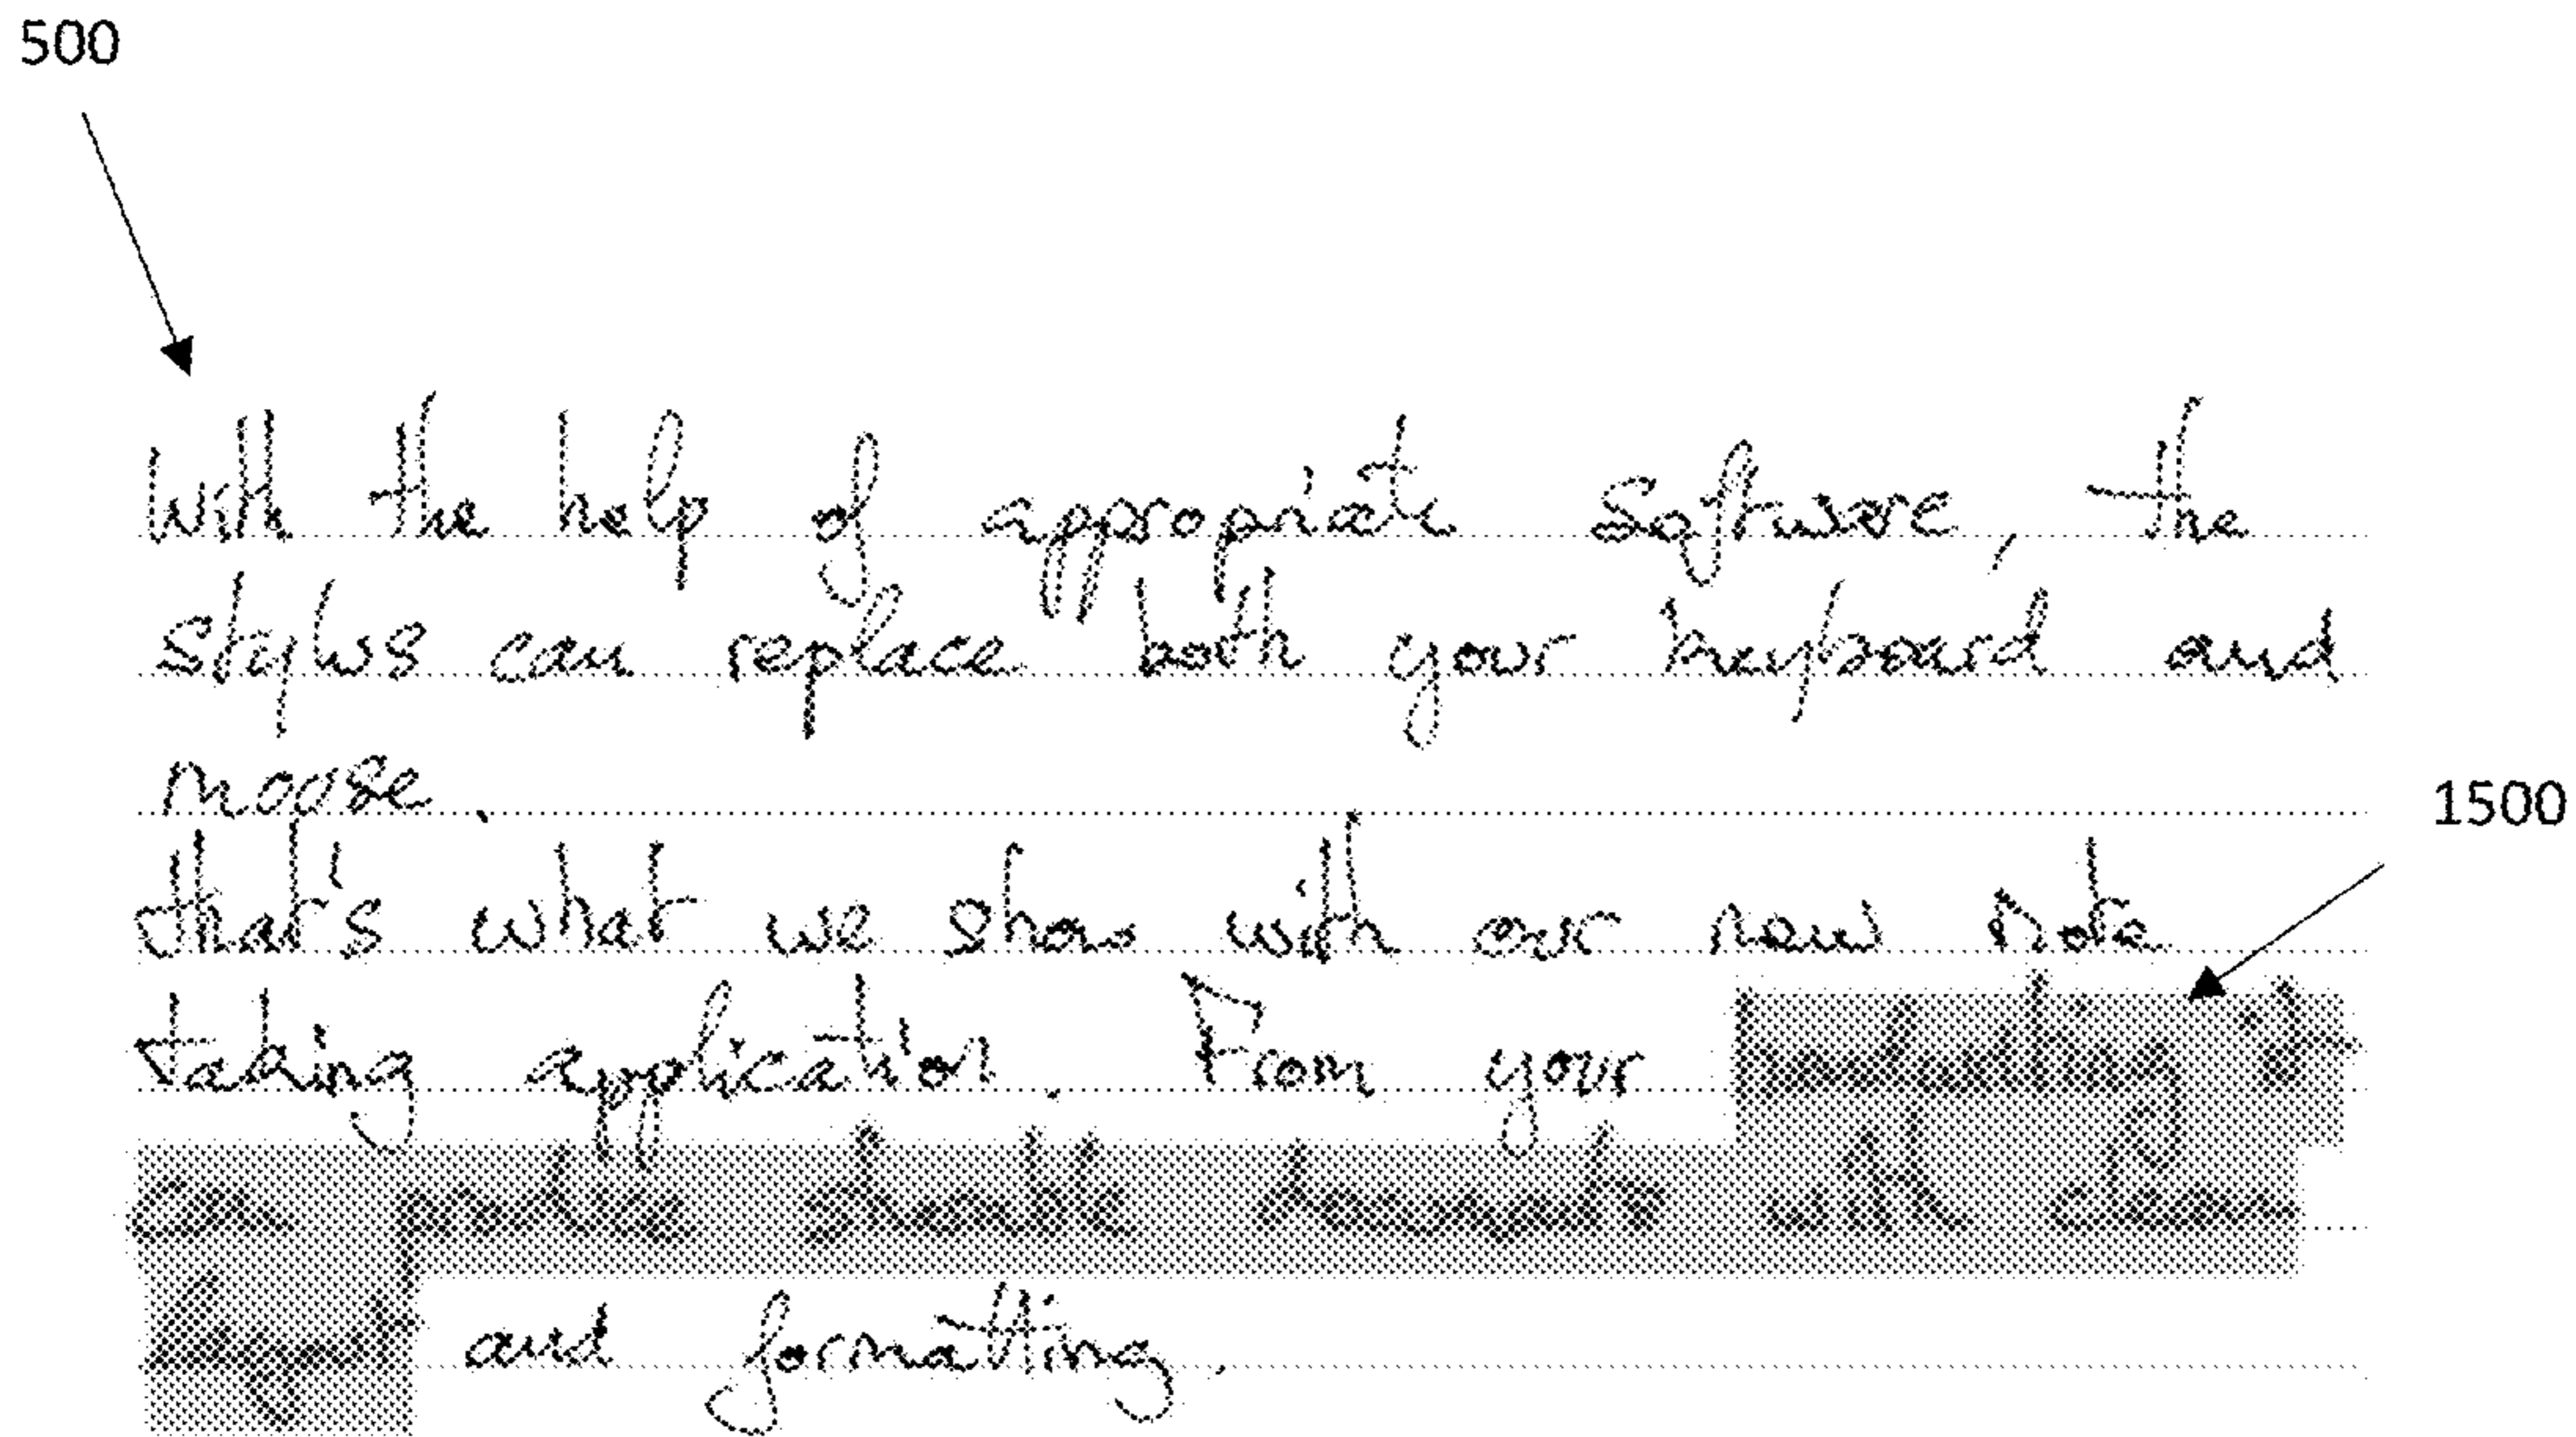 500
With the help of appropriate software, the
stylus can replace both your keyboard and
mouse.
1500
that's what we show with our new note
taking application. From your handwriting it
Can produce sharable documents with clean
layout and formatting.